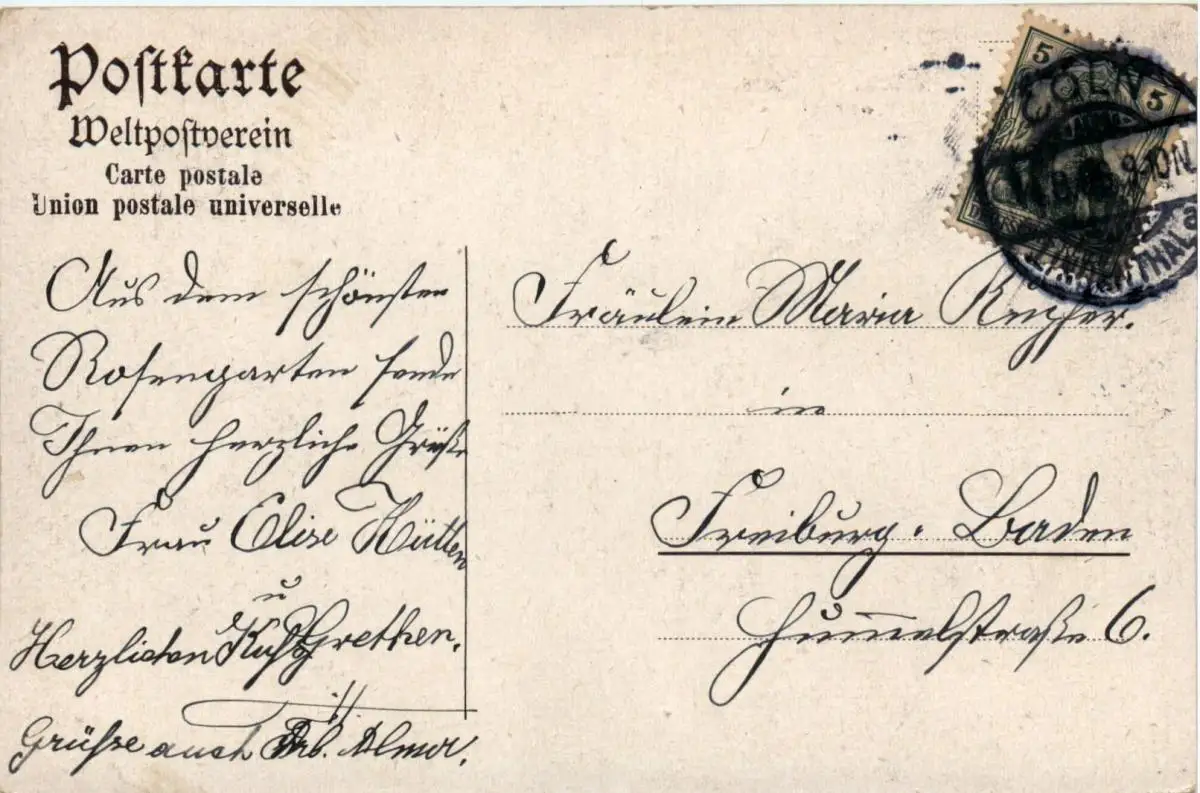 Postkarte
Weltpostverein
Carte postale
Union postale universelle
5
5
CÖLN
9-10N.
Aus dem schönsten
Rosengarten sende
Ihnen herzliche Grüße
Frau Elise Hütten
u
Herzlichen Kuß Grethen.
Grüße auch Frl. Alma.
Fräulein Maria
in
Freiburg. Baden
Hummelstraße 6.